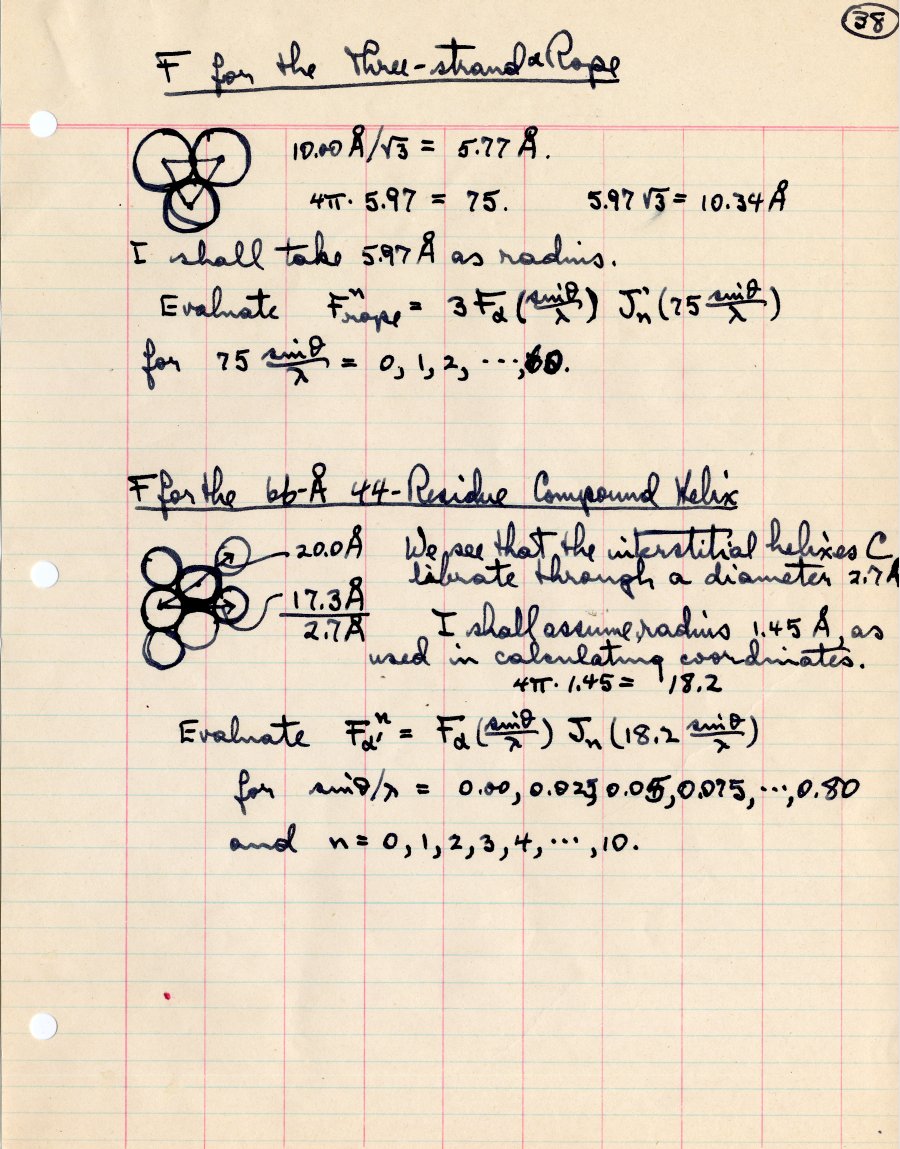 38
F for the Three-strand α Rope
10.00 Å/√3 = 5.77 Å.
4π · 5.97 = 75. 5.97 √3 = 10.34 Å
I shall take 5.97 Å as radius.
Evaluate Fⁿrope = 3 Fα (sinθ/λ) Jn (75 sinθ/λ)
for 75 sinθ/λ = 0, 1, 2, ···, 60.
F for the 66-Å 44-Residue Compound Helix
20.0 Å We see that the interstitial helixes C
librate through a diameter 2.7 Å
17.3 Å
2.7 Å I shall assume radius 1.45 Å, as
used in calculating coordinates.
4π · 1.45 = 18.2
Evaluate Fα'ⁿ = Fα (sinθ/λ) Jn (18.2 sinθ/λ)
for sinθ/λ = 0.00, 0.025, 0.05, 0.075, ···, 0.80
and n = 0, 1, 2, 3, 4, ···, 10.